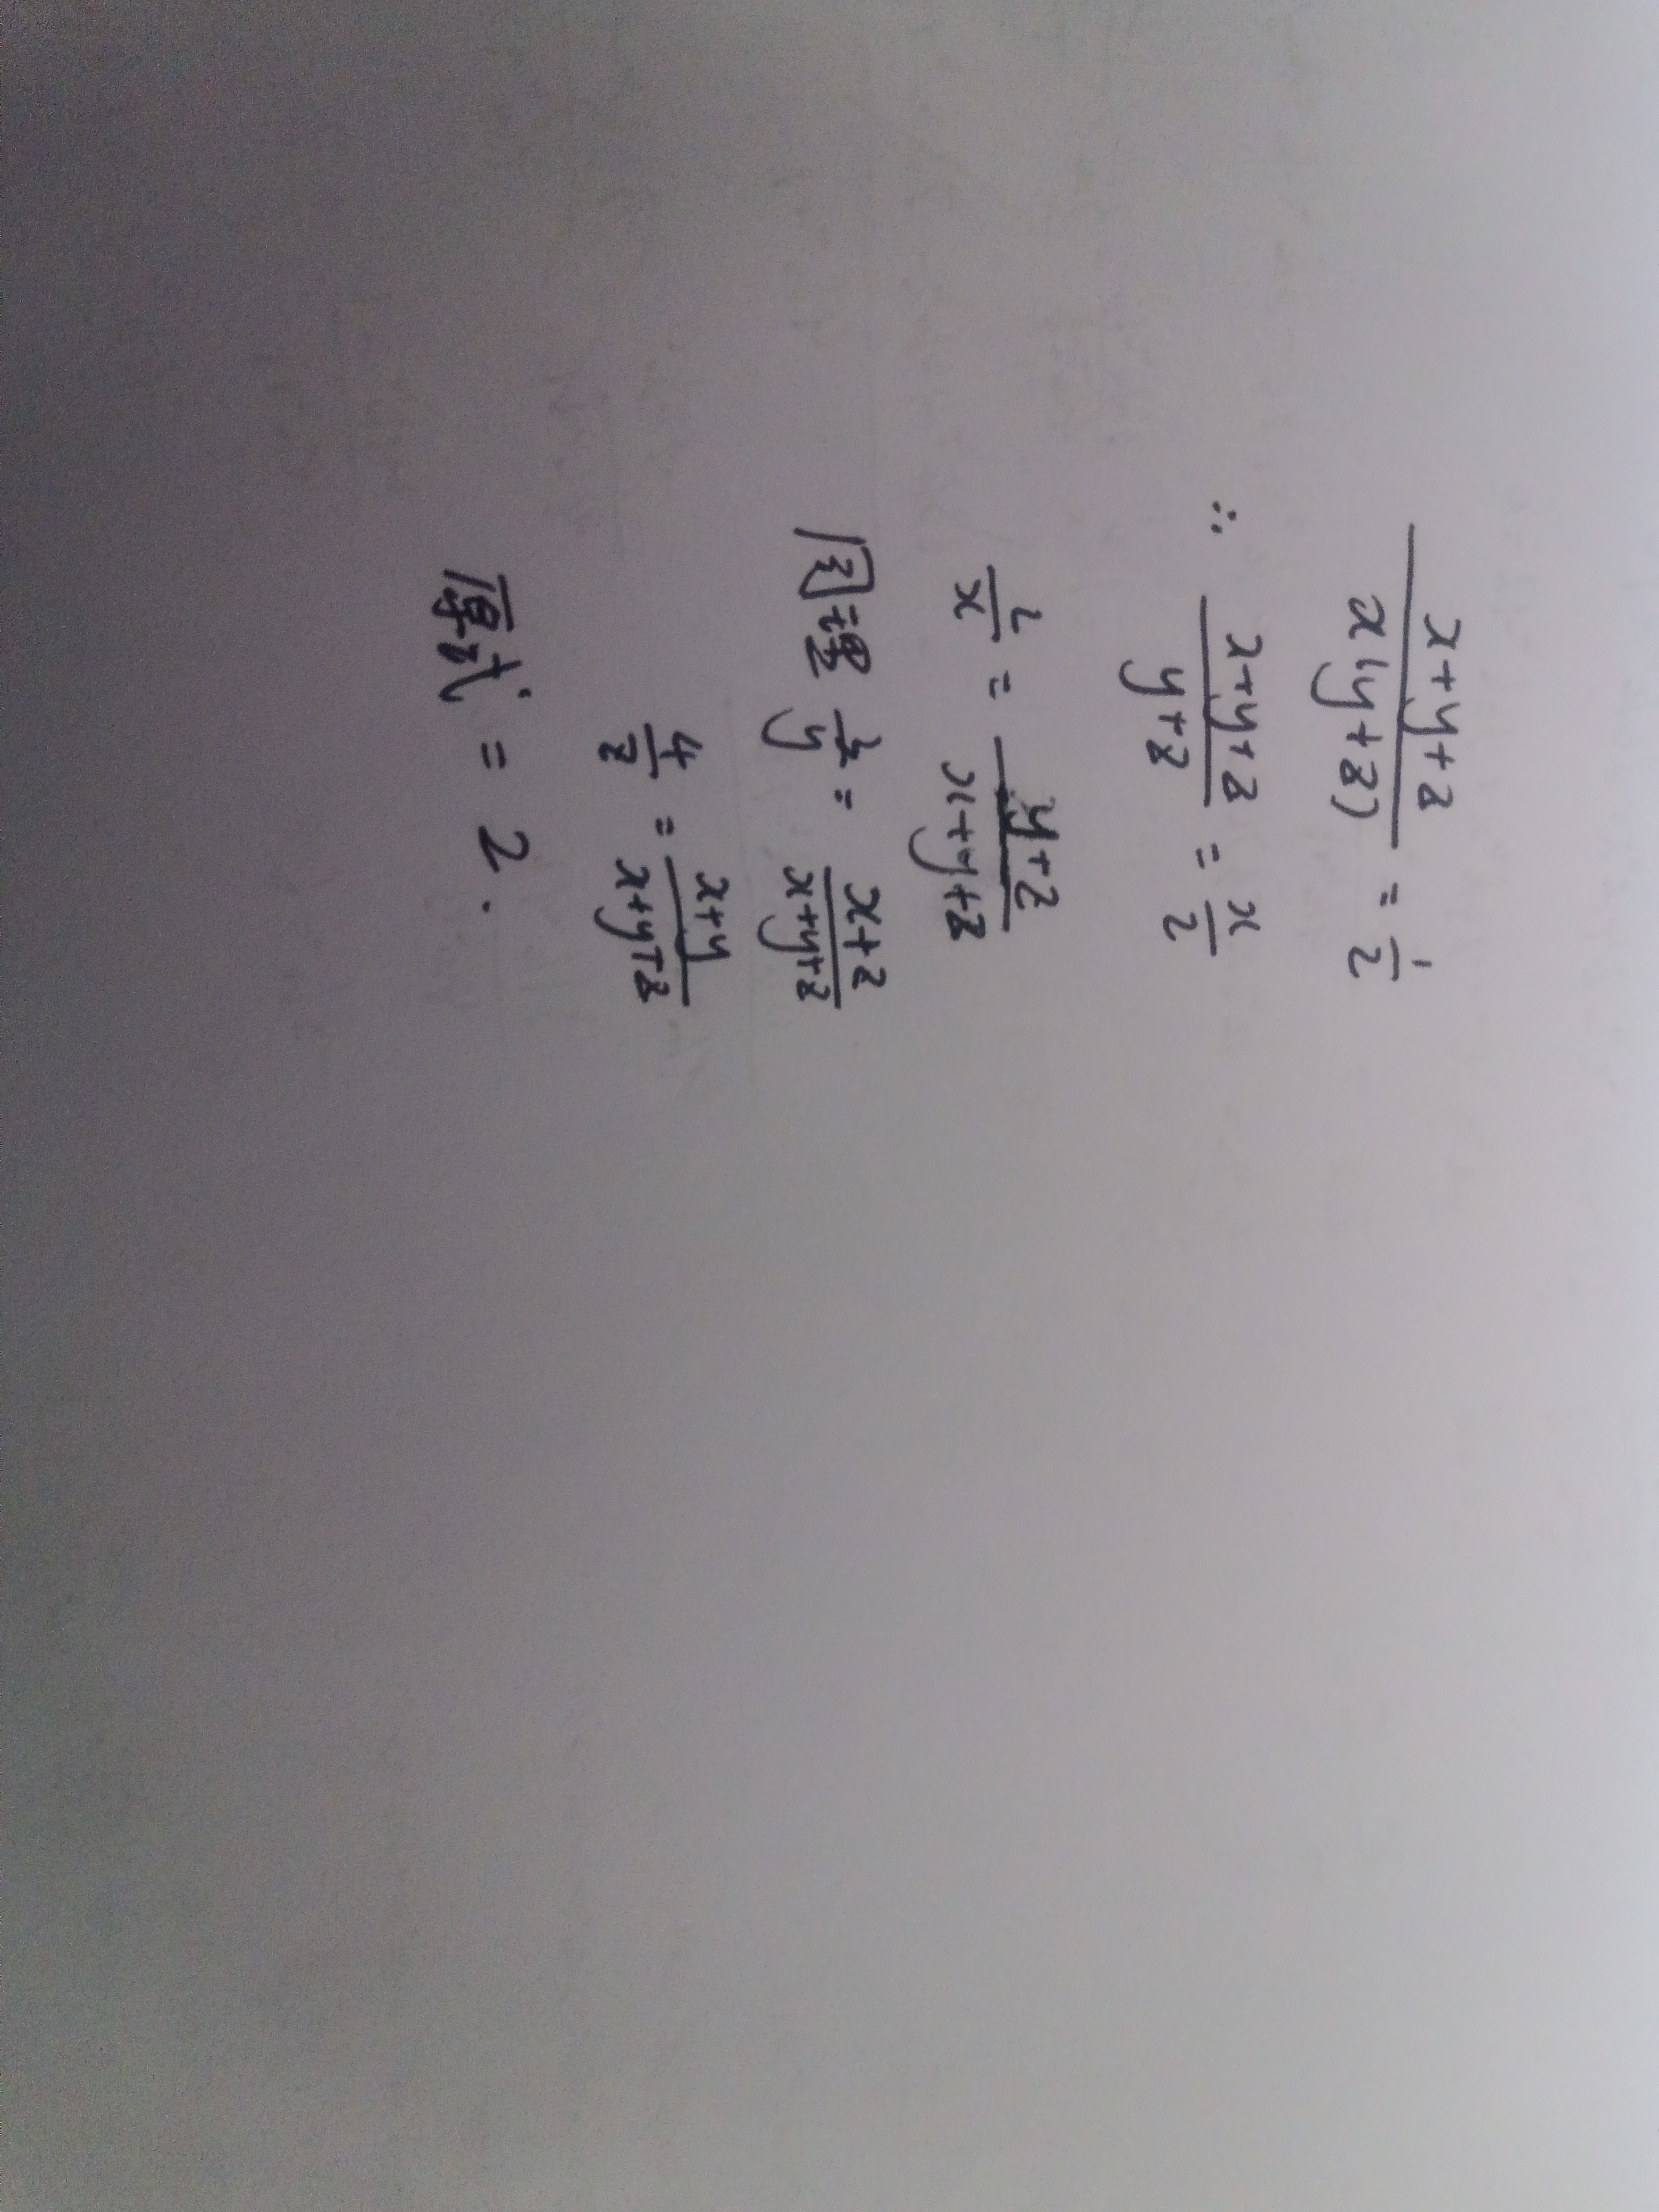 \frac{x+y+z}{x(y+z)} = \frac{1}{2}
∴ \frac{x+y+z}{y+z} = \frac{x}{2}
\frac{2}{x} = \frac{y+z}{x+y+z}
同理 \frac{3}{y} = \frac{x+z}{x+y+z}
\frac{4}{z} = \frac{x+y}{x+y+z}
原式 = 2.